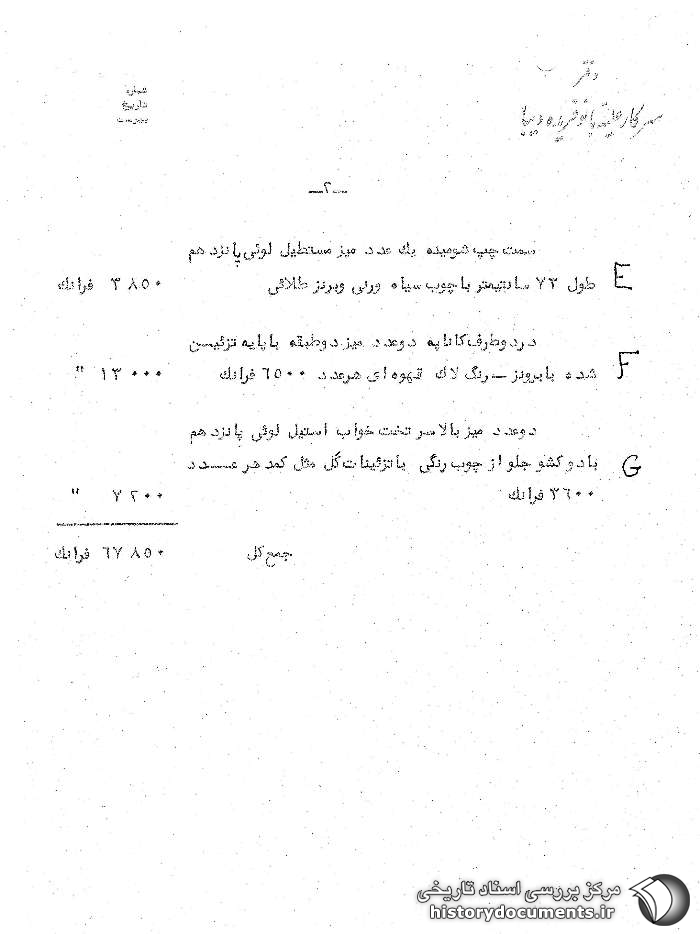 دفتر
سرکار علیه بانو فریده دیبا
شماره
تاریخ
پیوست
ـ۲ـ
سمت چپ شومینه یك عدد میز مستطیل لوئی پانزدهم
E طول ٧٣ سانتیمتر با چوب سیاه ورنی وبرنز طلائی ٣٨٥٠ فرانك
دردوطرف کاناپه دوعدد میز دوطبقه با پایه تزئیـن
F شده با برونز ــ رنگ لاك قهوه ای هرعدد ٦٥٠٠ فرانك ١٣٠٠٠ "
دوعدد میز بالاسر تخت خواب استیل لوئی پانزدهم
G با دو کشو جلو از چوب رنگی با تزئینات گل مثل کمد هر عــدد
٣٦٠٠ فرانك ٧٢٠٠ "
جمع کل ٦٧٨٥٠ فرانك
مرکز بررسی اسناد تاریخی
historydocuments.ir